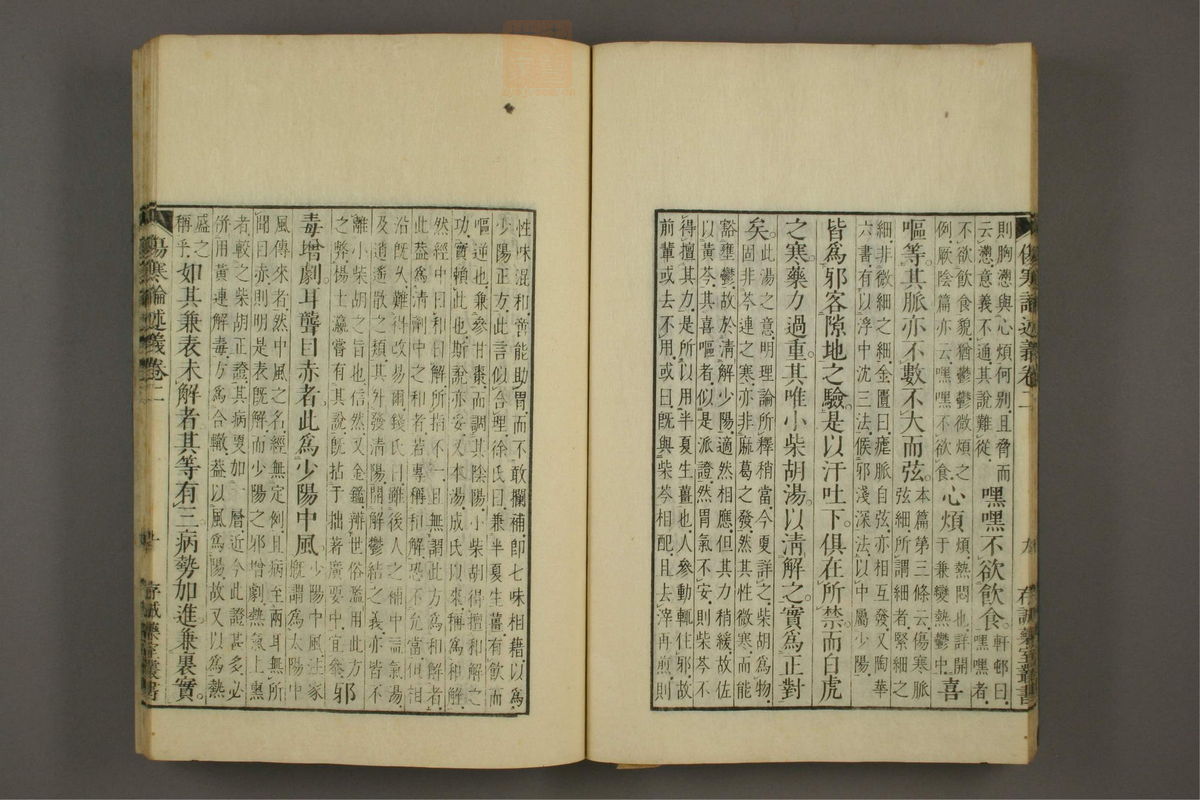 則胸懣與心煩何別且脅而
云懣意義不通其說難從嘿嘿不欲飲食軒邨曰嘿嘿者
不欲飲食貌猶鬱鬱微煩之煩熱悶也詳開
例厥陰篇亦云嘿嘿不欲食心煩于兼變熱鬱中喜
嘔等其脈亦不數不大而弦本篇第三條云傷寒脈弦細所謂細者緊細之
細非微細之細金匱曰瘧脈自弦亦相互發又陶華
六書有以浮中沈三法候邪淺深法以中屬少陽
皆為邪客隙地之驗是以汗吐下俱在所禁而白虎
之寒藥力過重其唯小柴胡湯以淸解之實為正對
矣此湯之意明理論所釋稍當今更詳之柴胡為物
固非芩連之寒亦非麻葛之發然其性微寒而能
豁壅鬱故於淸解少陽適然相應但其力稍緩故佐
以黃芩其喜嘔者似是派證然胃氣不安則柴芩不
得擅其力是所以用半夏生薑也人參動輒住邪故
前輩或去不用或曰既與柴芩相配且去滓再煎則
傷寒論述義卷二
九
存誠藥室叢書
性味混和善能助胃而不敢攔補即七味相藉以為
少陽正方此言似合理徐氏曰兼半夏生薑有飲而
嘔逆也兼參甘棗而調其陰陽小柴胡得擅和解之
功實賴此也斯說亦妥又本湯成氏以來稱為和解
然經中曰和曰解所指不一且無謂此方為和解者
此蓋為淸劑中之和者若專稱和解恐不允當但相
沿既久難得改易爾錢氏曰離後人之補中益氣湯
及逍遙散之類其升發淸陽開解鬱結之義亦皆不
離小柴胡之旨也信然又金鑑辨世俗濫用此方
之弊楊士瀛嘗有其說既拈于拙著廣要中宜參邪
毒增劇耳聾目赤者此為少陽中風少陽中風注家既謂為太陽中
風傳來者然中風之名經無定例且病至兩耳無所
聞目赤則明是表既解而少陽之邪增劇熱氣上熏
者較之柴胡正證其病更加一層近今此證甚多必
併用黃連解毒方為合轍蓋以風為陽故又以為熱
盛之稱乎如其兼表未解者其等有三病勢加進兼裏實
傷寒論述義卷二
十
存誠藥室叢書